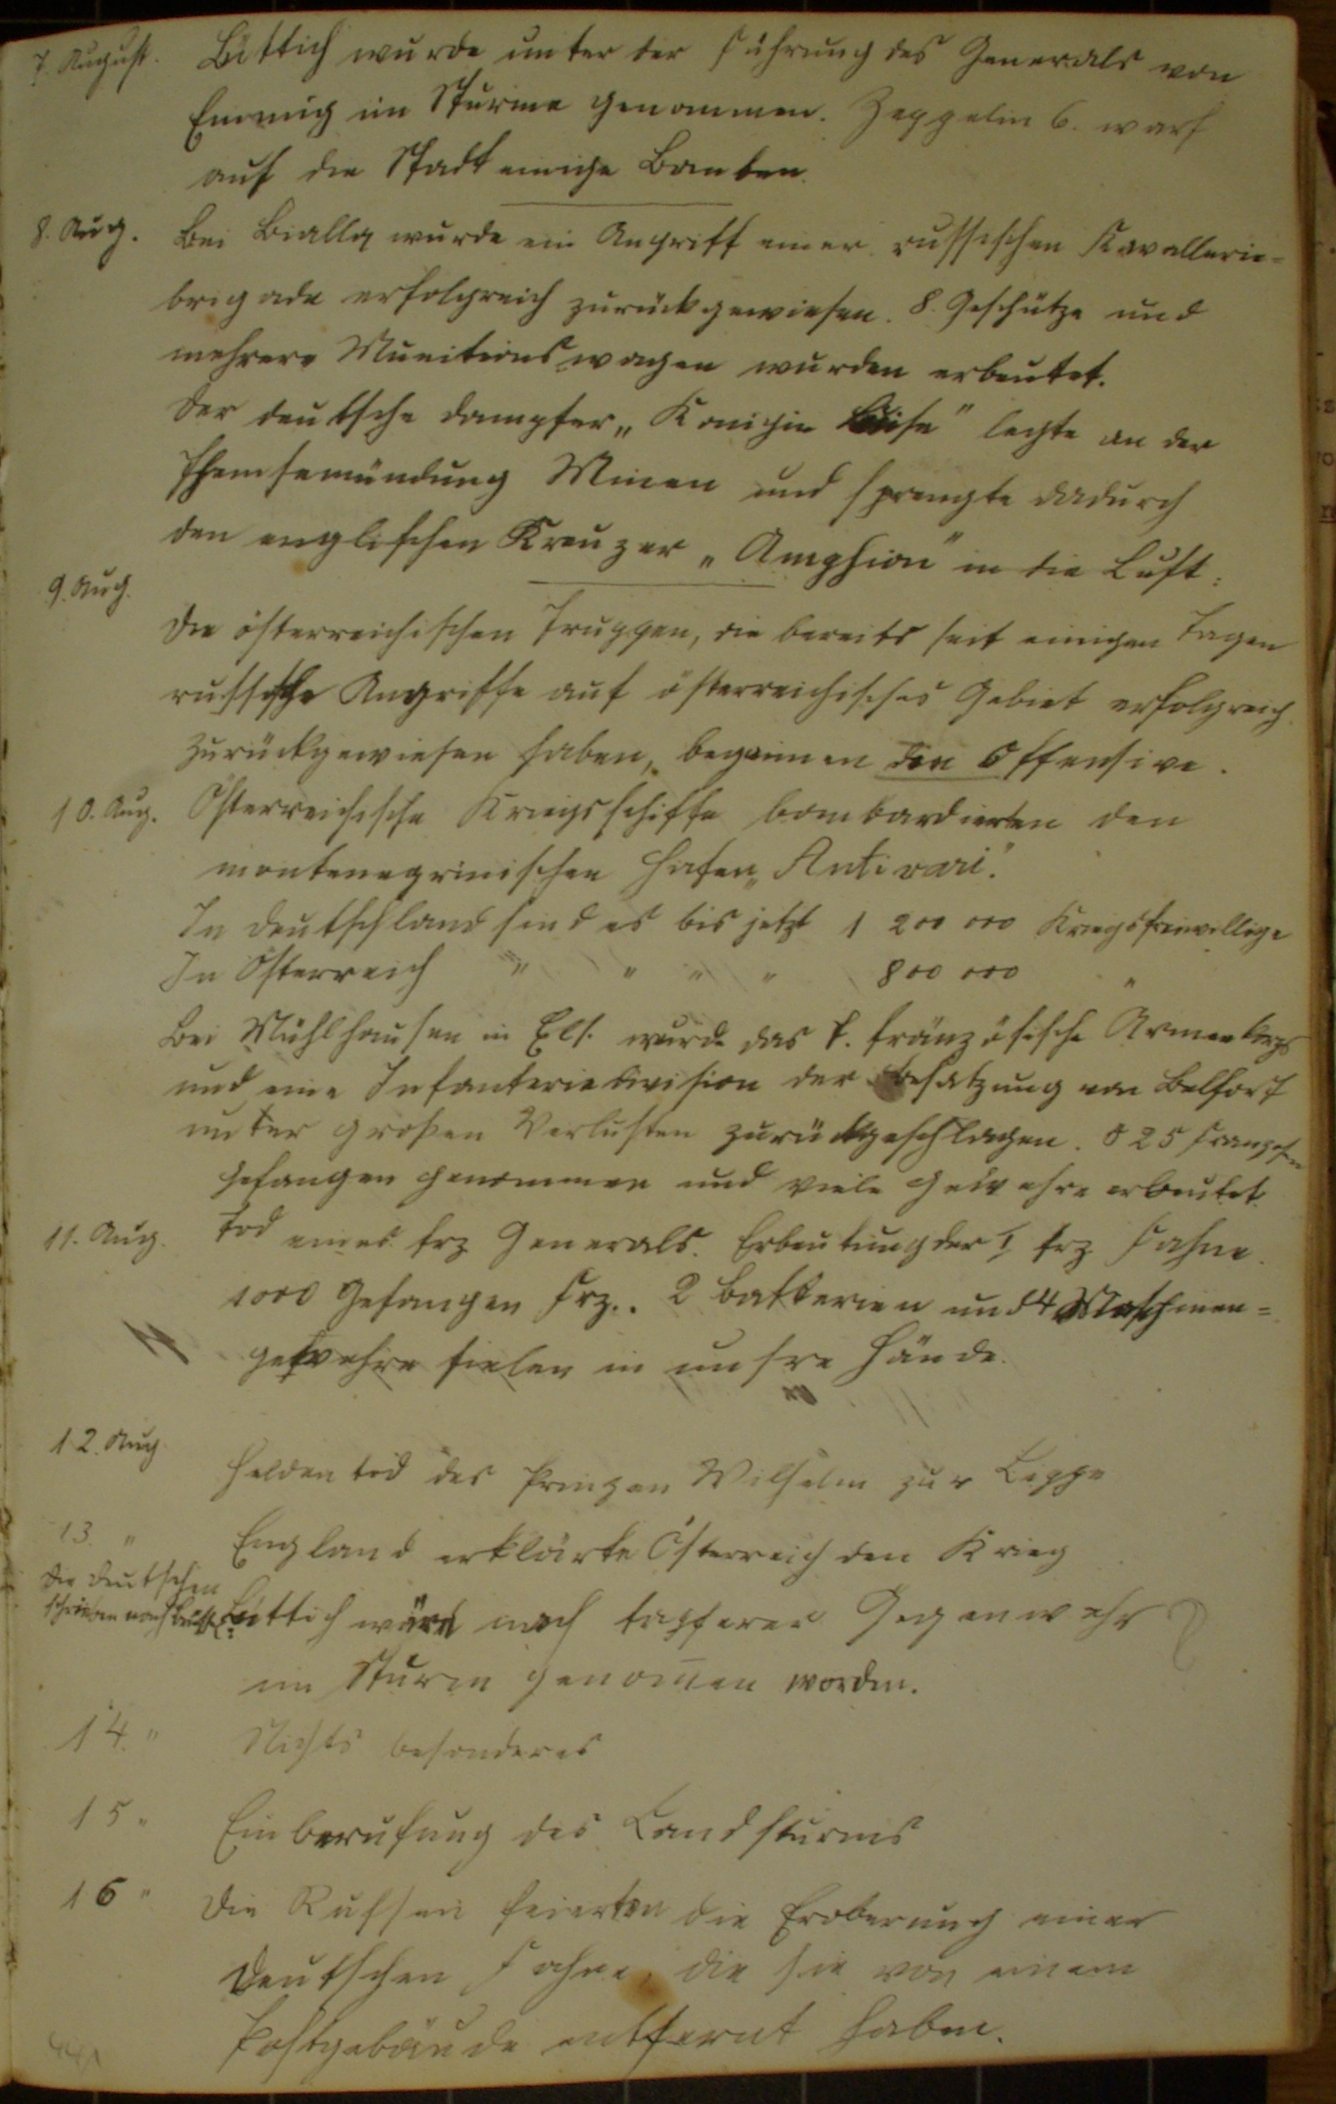 7. August. Lüttich wurde unter der Führung des Generals von
Emmig im Sturme genommen. Zeppelin 6. warf
auf die Stadt einige Bomben.
8. Aug. Bei Bialla wurde ein Angriff einer russischen Kavallerie-
brigade erfolgreich zurückgewiesen. 8 Geschütze und
mehrere Munitionswagen wurden erbeutet.
Der deutsche Dampfer „Königin Luise" legte an der
Themsemündung Minen und sprengte dadurch
den englischen Kreuzer „Amphion" in die Luft.
9. Aug.
Die österreichischen Truppen, die bereits seit einigen Tagen
russische Angriffe auf österreichisches Gebiet erfolgreich
zurückgewiesen haben, beginnen die Offensive.
10. Aug. Österreichische Kriegsschiffe bombardierten den
montenegrinischen Hafen „Antivari".
In Deutschland sind es bis jetzt 1 200 000 Kriegsfreiwillige
In Österreich " " " " 800 000 "
Bei Mühlhausen in Els. wurde das 7. französische Armeekorps
und eine Infanteriedivision der Besatzung von Belfort
unter großen Verlusten zurückgeschlagen. 825 Franzosen
gefangen genommen und viele Gewehre erbeutet.
11. Aug. Tod eines frz Generals. Erbeutung der I. frz Fahne.
1000 Gefangen Frz.. 2 Batterien und 4 Maschinen=
gewehre fielen in unsre Hände.
12. Aug Heldentod des Prinzen Wilhelm zur Lippe
13. " England erklärte Österreich den Krieg
Die Deutschen
Lüttich wäre nach tapferer Gegenwehr
im Sturm genomen worden.
14. " Nichts besonderes
15 " Einberufung des Landsturms
16 " Die Russen feierten die Eroberung einer
Deutschen Fahne, die sie von einem
Postgebäude entfernt haben.